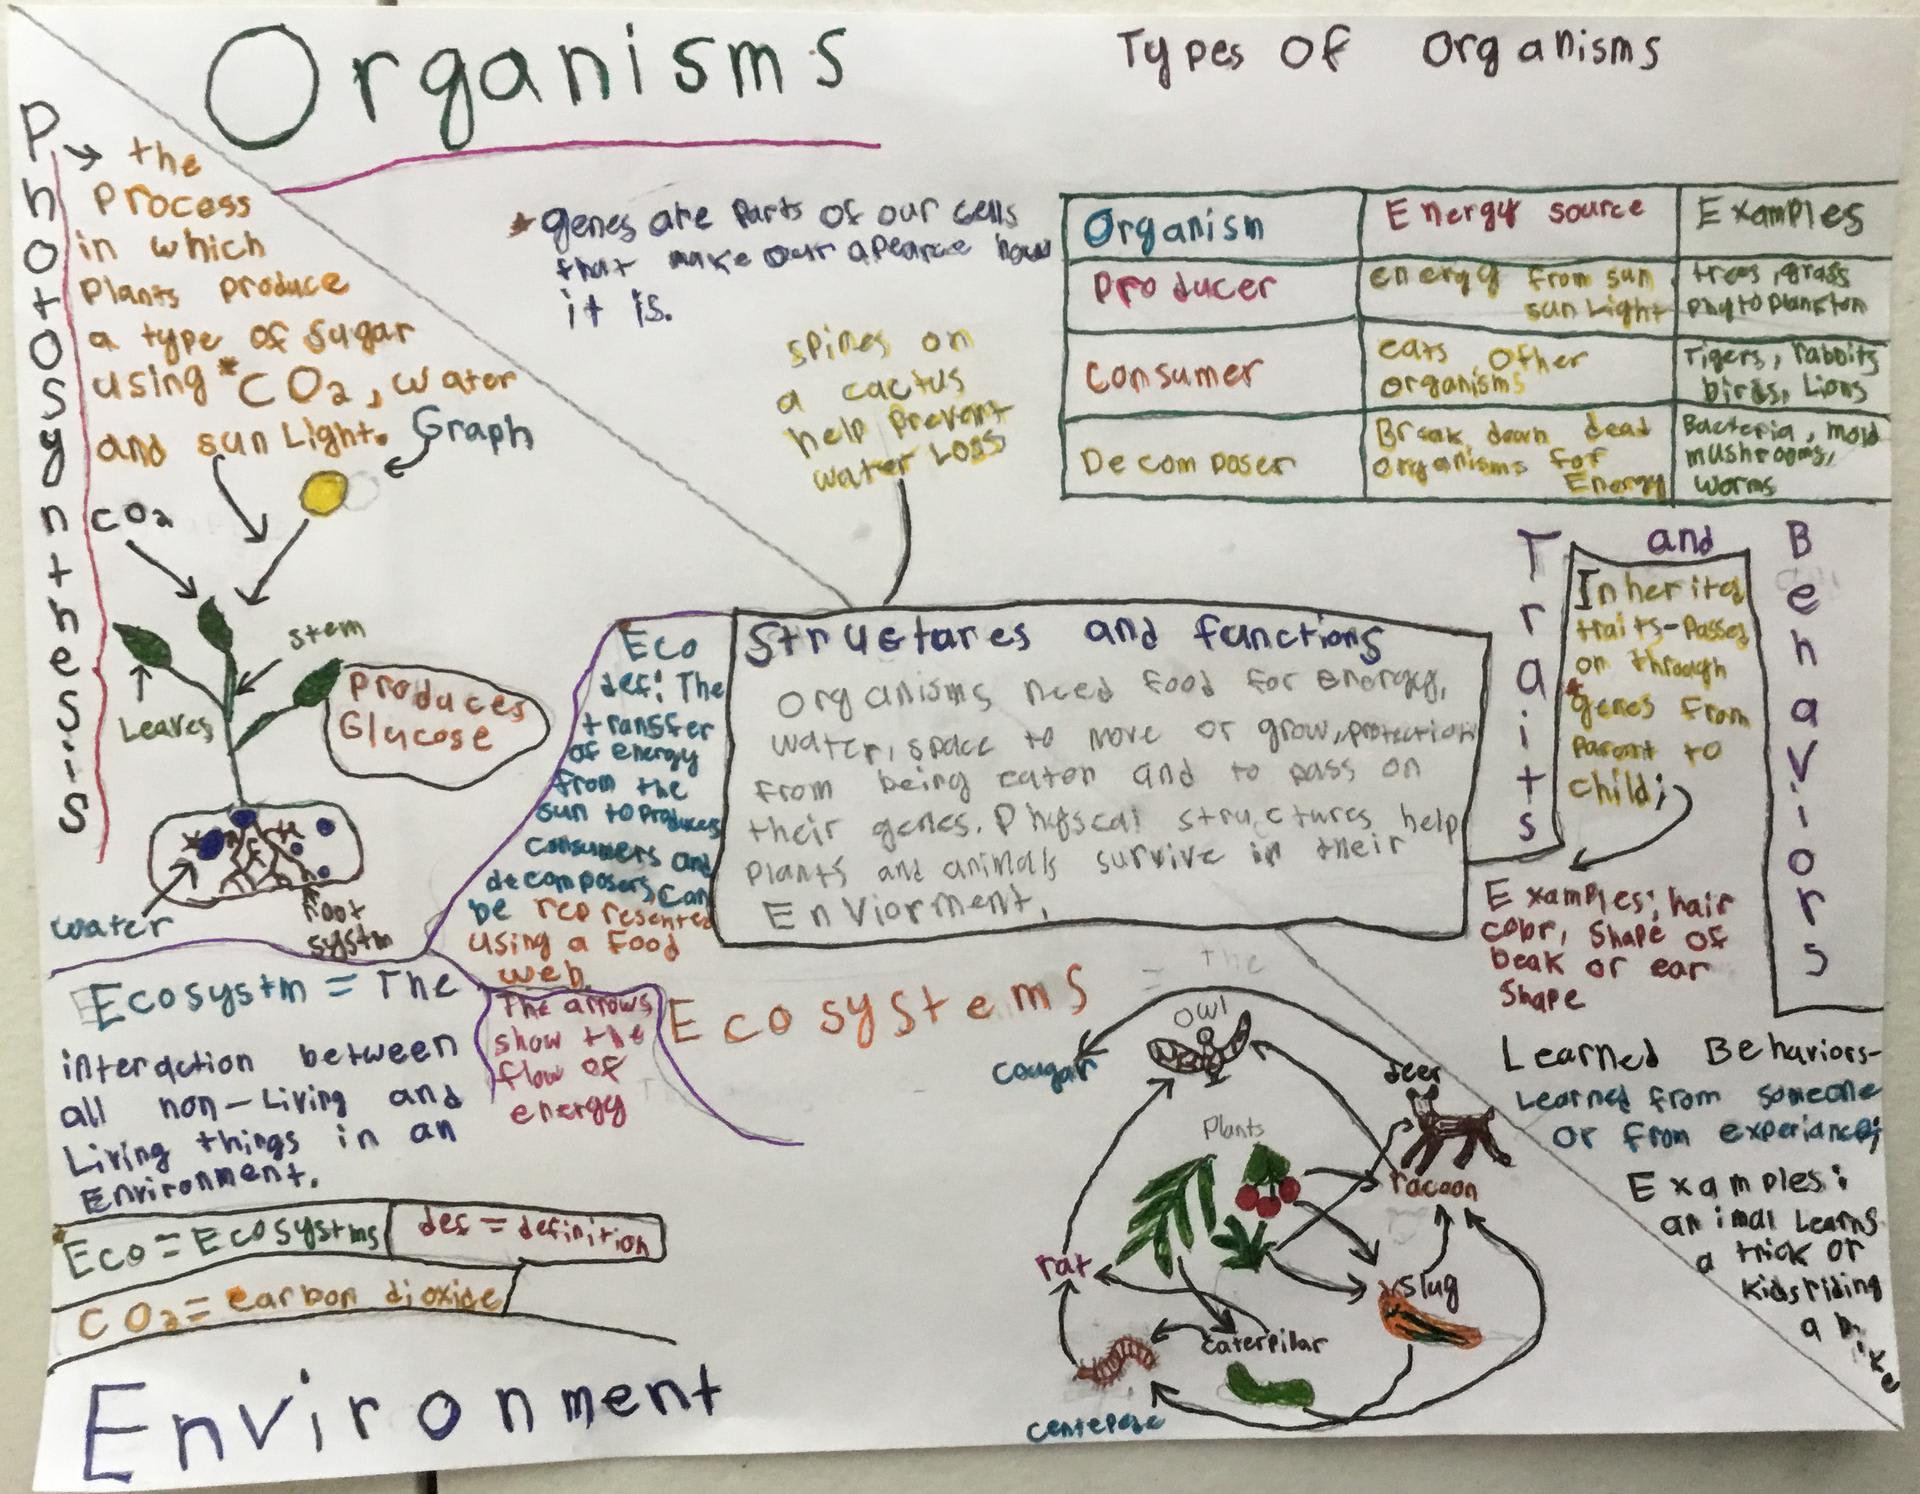 Organisms
Types Of Organisms
Photosynthesis
→ the
Process
in which
Plants produce
a type of sugar
using *CO2, water
and sun Light.
Graph
CO2
stem
Leaves
Produces
Glucose
water
Root
systm
* genes are Parts of our cells
that make our apearce how
it is.
spines on
a cactus
help Prevent
water Loss
Organism
Energy source
Examples
Producer
energy from sun
sun Light
trees, grass
phytoplankton
Consumer
eats Other
organisms
Tigers, rabbits
birds, Lions
Decomposer
Break down dead
organisms for
Energy
Bacteria, mold
mushrooms,
worms
Structares and functions
Organisms need food for energy,
water, space to move or grow, protection
from being eaten and to pass on
their genes. Physcal structures help
plants and animals survive in their
EnViorment.
Traits
and
Behaviors
Inherited
traits-Passes
on through
*genes From
Parent to
child;
Examples; hair
color, Shape of
beak or ear
Shape
Learned Behaviors-
Learned from someone
or from experiance;
Examples:
animal Learns
a trick or
Kids riding
a bike
Eco
def: The
transfer
of energy
from the
sun to produces
consumers and
decomposers, Can
be represented
using a Food
web.
The arrows
show the
flow of
energy
Ecosystm = The
interaction between
all non-Living and
Living things in an
Environment.
Eco = Ecosystms
def = definition
CO2 = Carbon dioxide
Environment
Ecosystems = The
Owl
cougar
deer
Plants
racoon
rat
slug
caterpilar
centepede